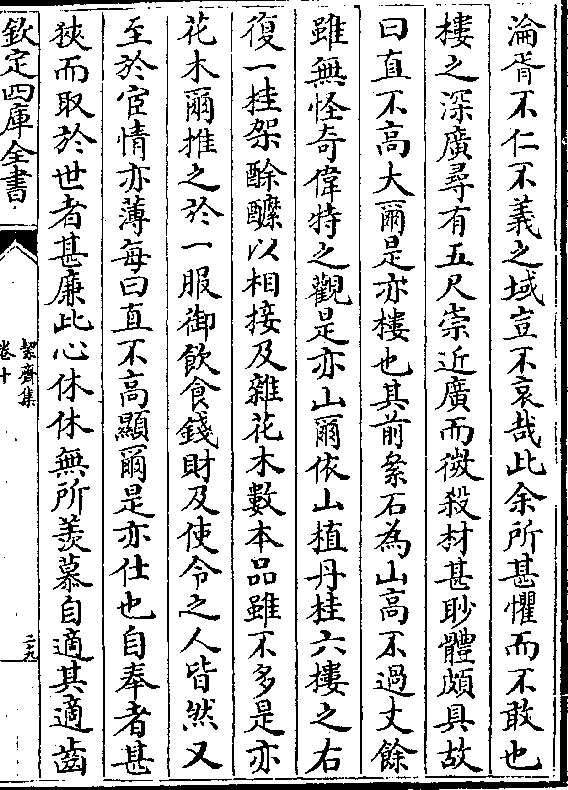 淪胥不仁不義之域豈不哀哉此余所甚懼而不敢也
樓之深廣尋有五尺崇近廣而微殺材甚眇體頗具故
曰直不高大爾是亦樓也其前絫石為山高不過丈餘
雖無怪奇偉特之觀是亦山爾依山植丹桂六樓之右
復一桂架酴醾以相接及雜花木數本品雖不多是亦
花木爾推之於一服御飲食錢財及使令之人皆然又
至於宦情亦薄每曰直不高顯爾是亦仕也自奉者甚
狹而取於世者甚廉此心休休無所羨慕自適其適齒
欽定四庫全書
絜齋集
卷十
二九